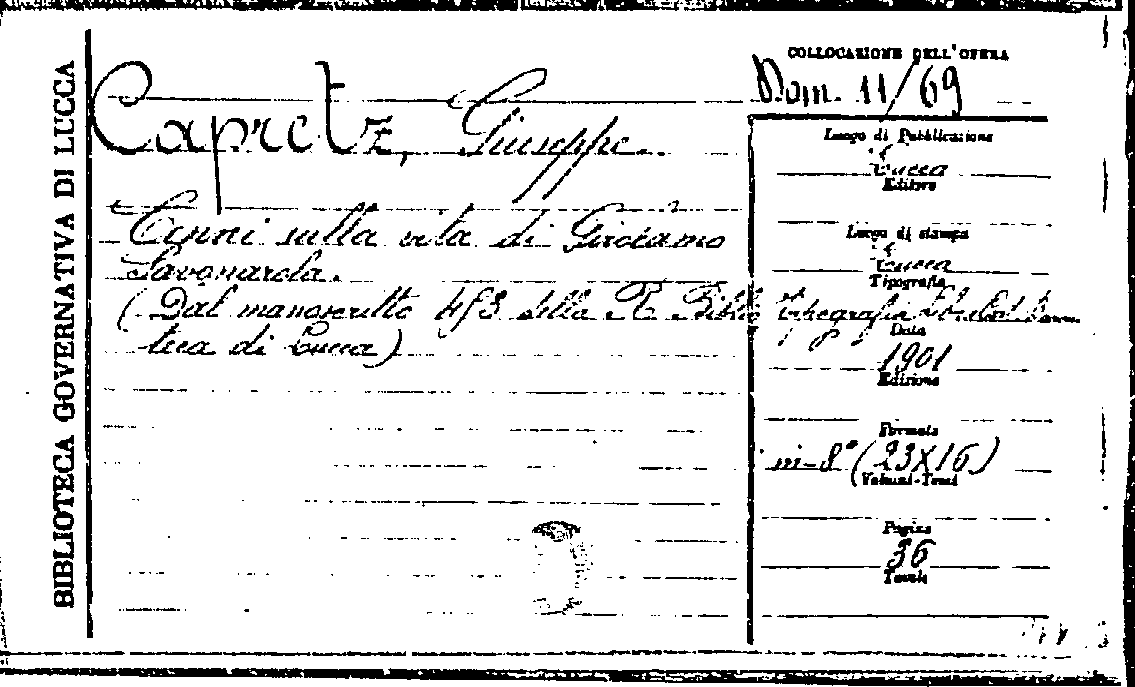 BIBLIOTECA GOVERNATIVA DI LUCCA
COLLOCAZIONE DELL'OPERA
Dom. 11/69
Capretz, Giuseppe.
Cenni sulla vita di Girolamo
Savonarola.
(Dal manoscritto 493 della R. Biblio
teca di Lucca)
Luogo di Pubblicazione
Lucca
Editore
Luogo di stampa
Lucca
Tipografia
Tipografia
Data
1901
Edizione
Formato
in-8° (23X16)
Volumi-Tomi
Pagine
36
Tavole